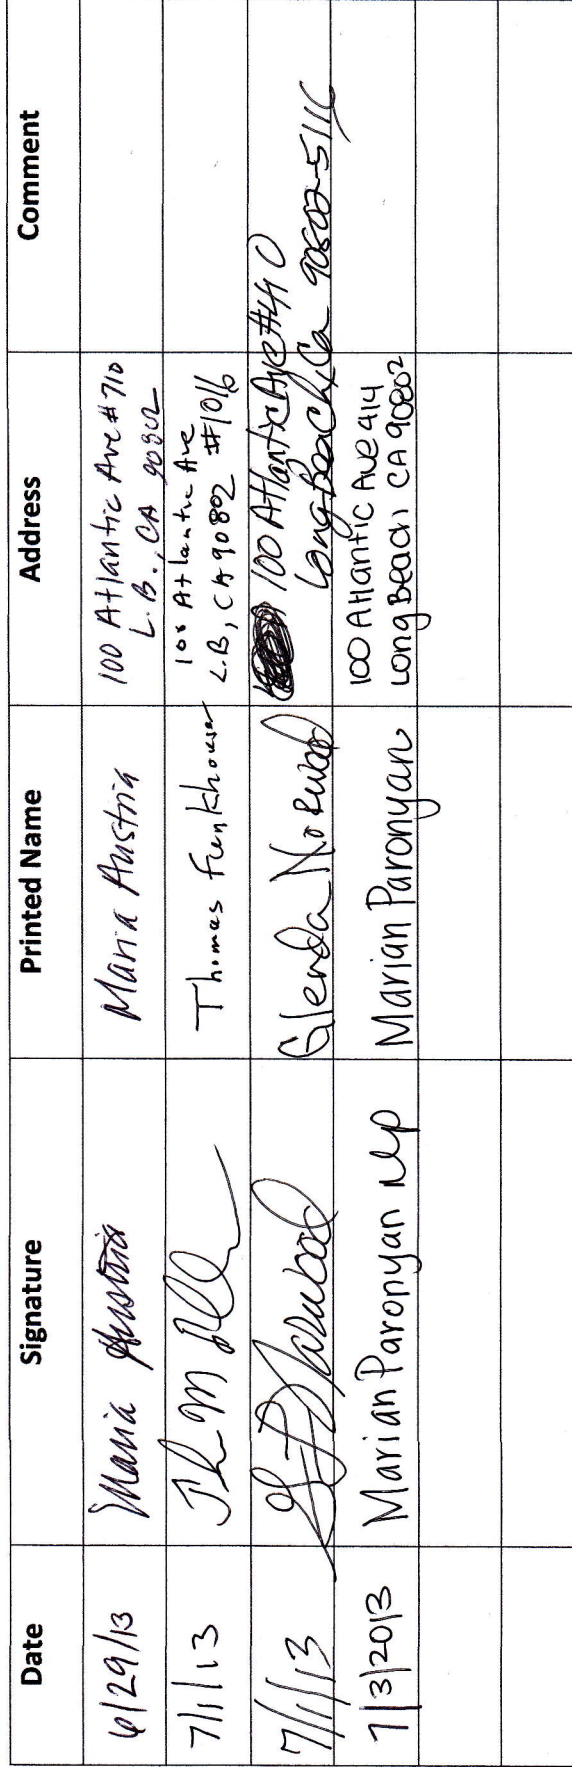 Date Signature Printed Name Address Comment
6/29/13 Maria Austria Maria Austria 100 Atlantic Ave #710
L.B., CA 90802
7/1/13 Thomas Funkhouser 100 Atlantic Ave
L.B, CA 90802 #1016
7/1/13 Glenda Norwood 100 Atlantic Ave #410
Long Beach, Ca 90802-5116
7/3/2013 Marian Paronyan Marian Paronyan 100 Atlantic Ave 414
Long Beach CA 90802